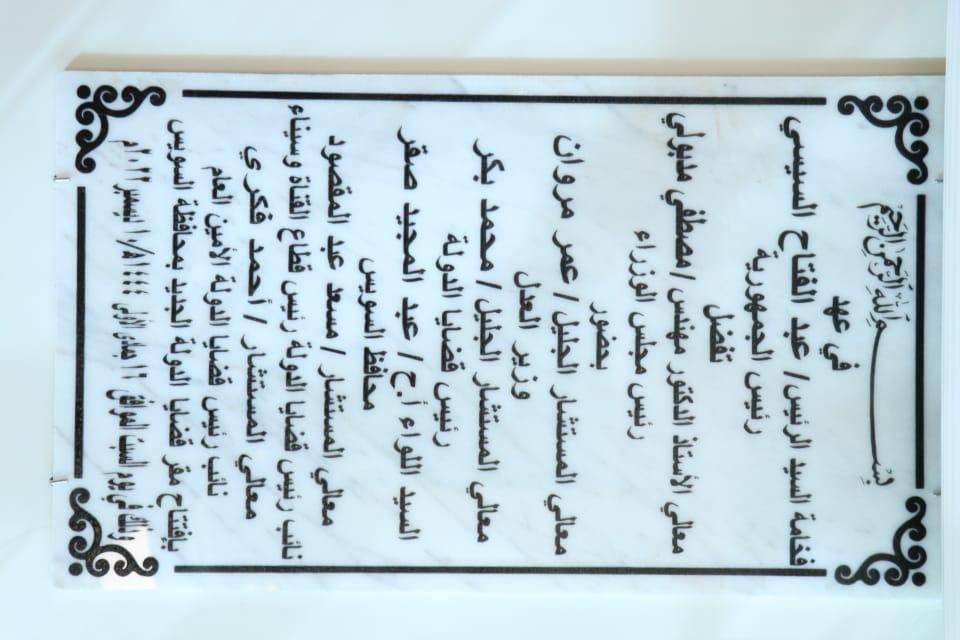 بسم الله الرحمن الرحيم
في عهد
فخامة السيد الرئيس / عبد الفتاح السيسي
رئيس الجمهورية
تفضل
معالي الأستاذ الدكتور مهندس / مصطفي مدبولي
رئيس مجلس الوزراء
بحضور
معالي المستشار الجليل / عمر مروان
وزير العدل
معالي المستشار الجليل / محمد بكر
رئيس قضايا الدولة
السيد اللواء أ.ح / عبد المجيد صقر
محافظ السويس
معالي المستشار / مسعد عبد المقصود
نائب رئيس قضايا الدولة رئيس قطاع القناة وسيناء
معالي المستشار / أحمد فكري
نائب رئيس قضايا الدولة الأمين العام
بإفتتاح مقر قضايا الدولة الجديد بمحافظة السويس
وذلك في يوم السبت الموافق ١٦ جمادى الأولى